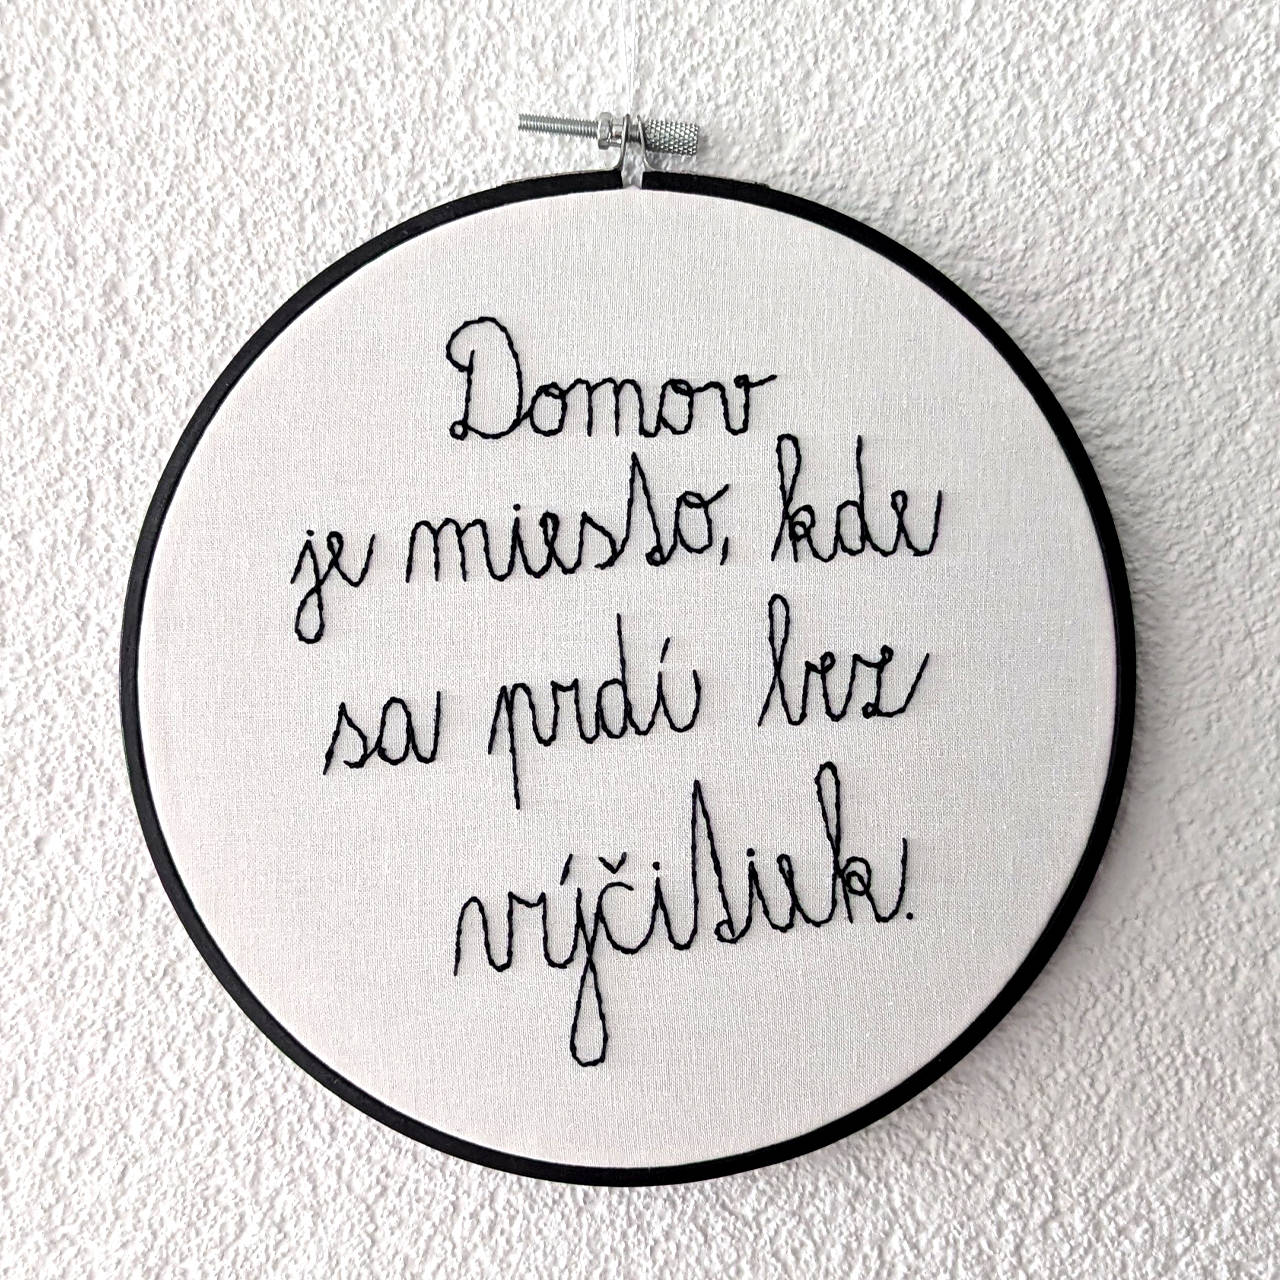 Domov
je miesto, kde
sa prdí bez
výčitiek.